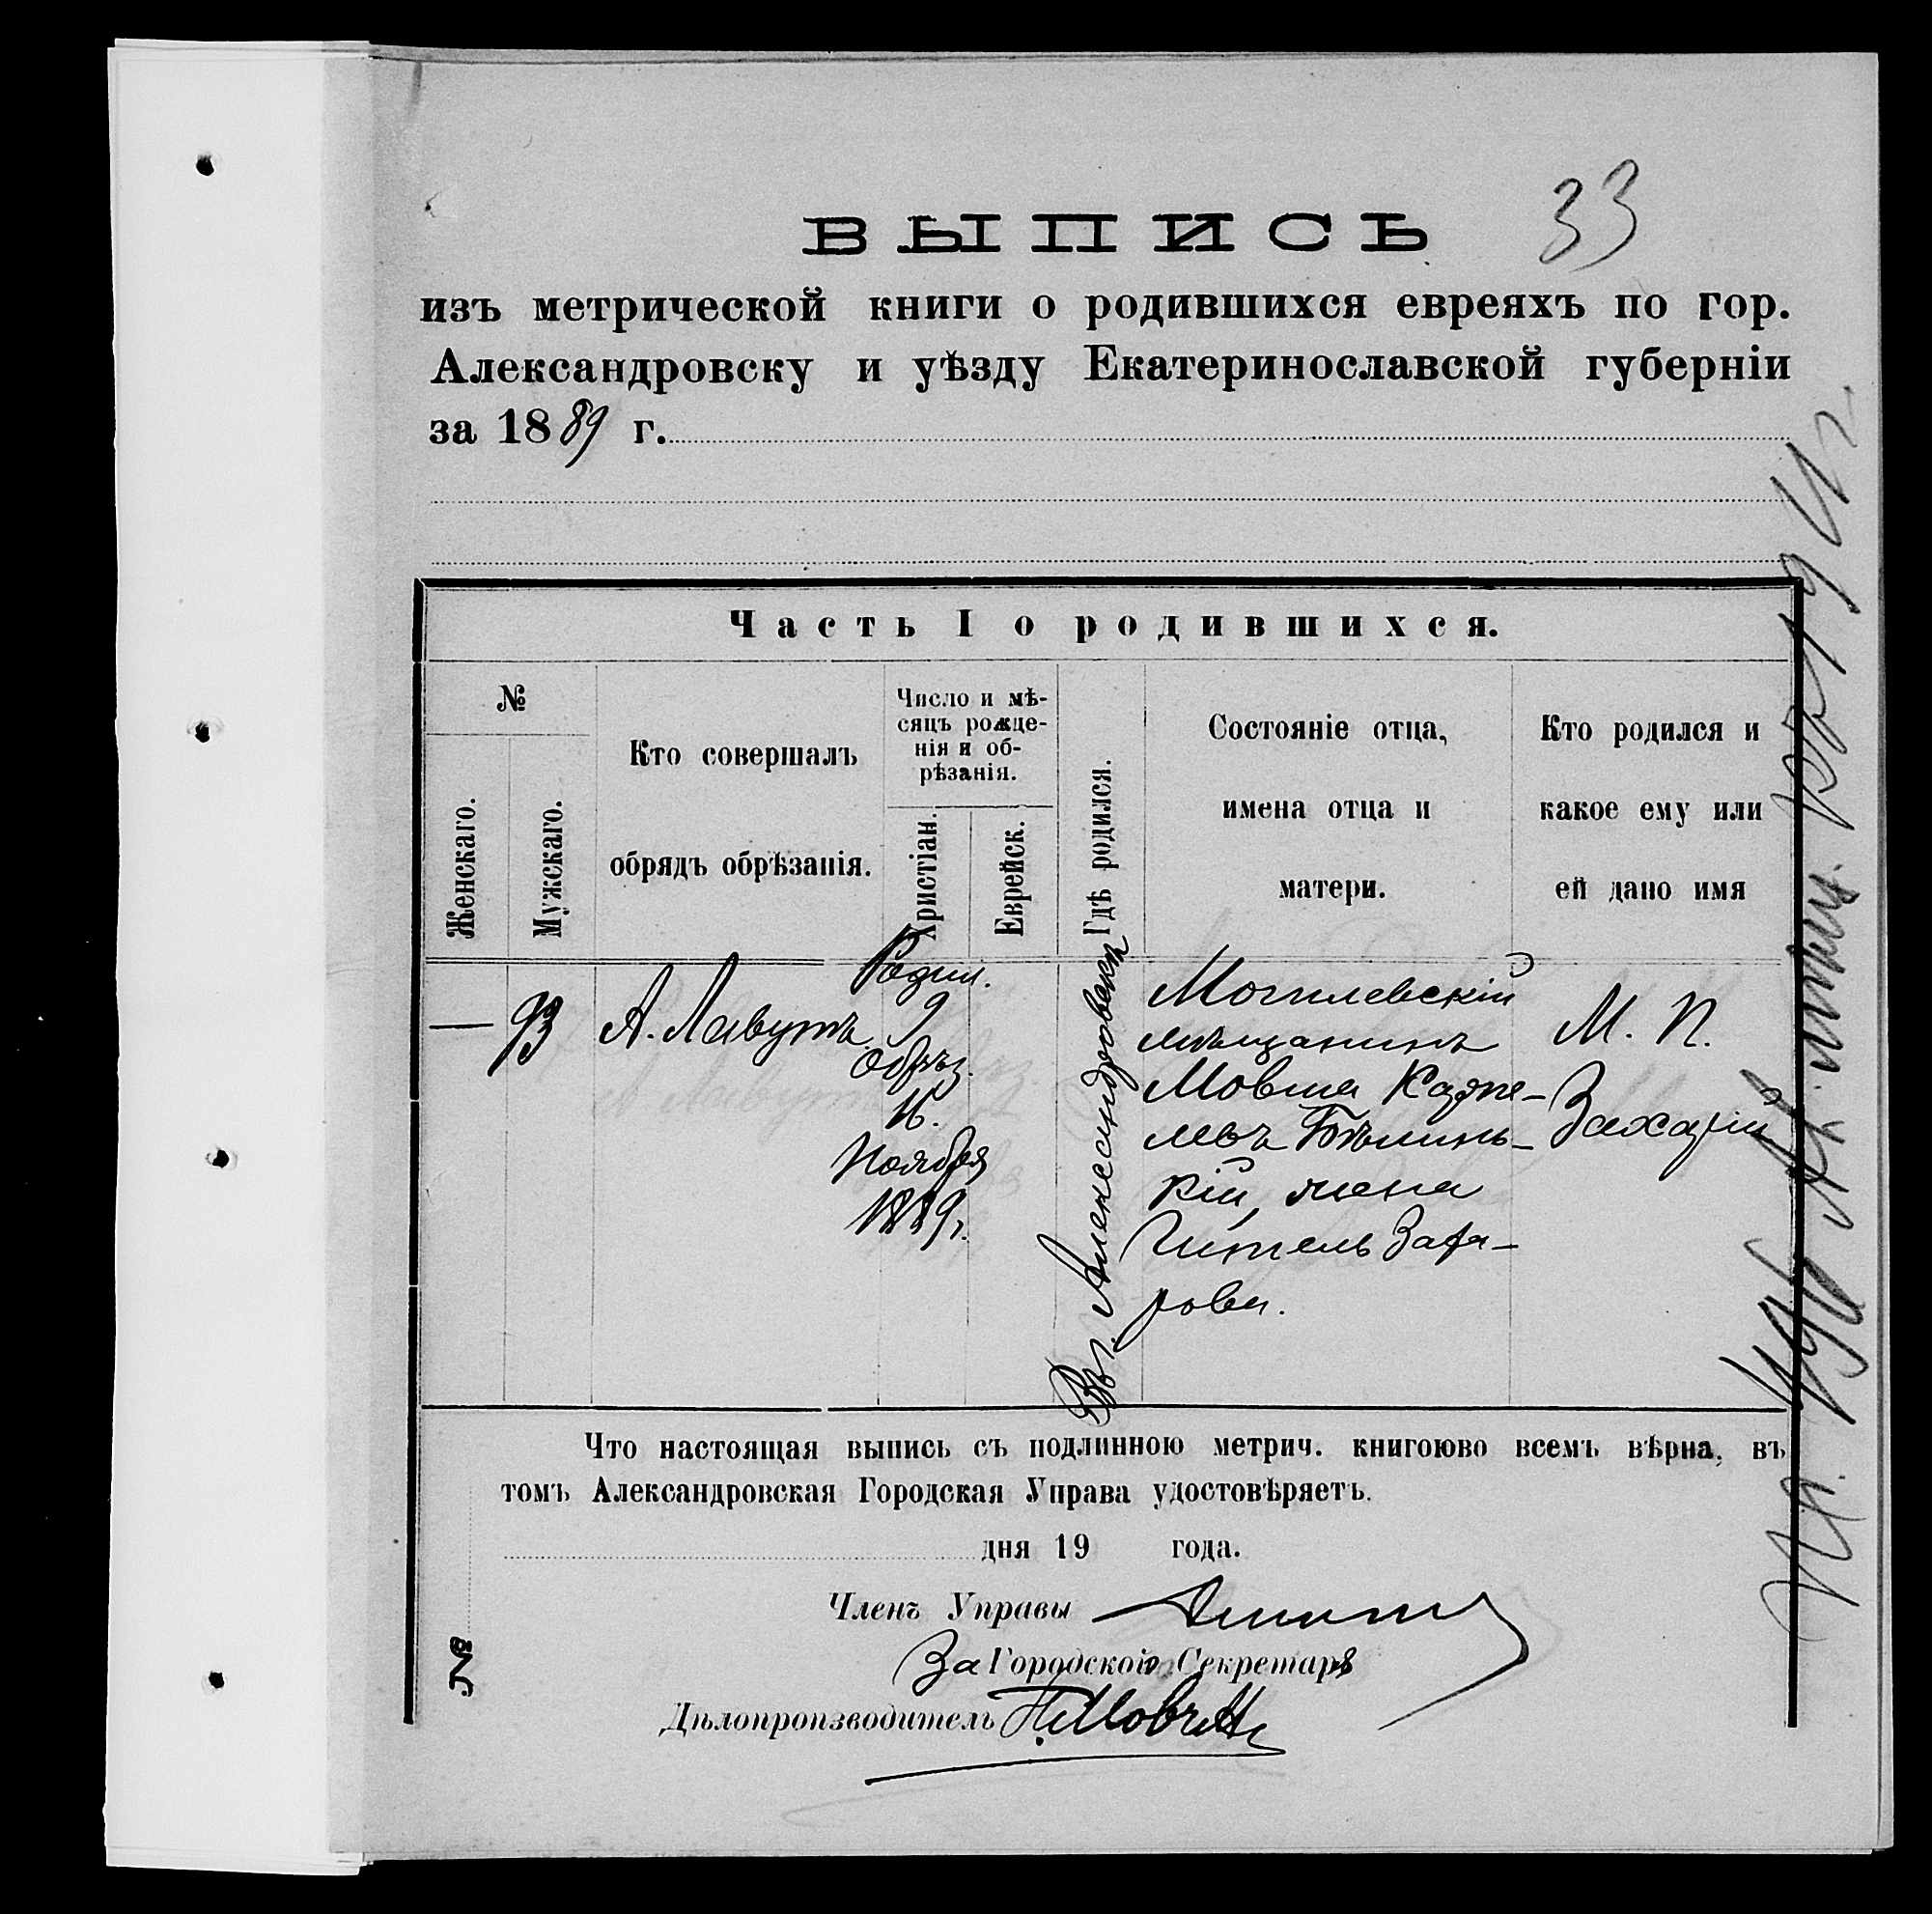 33
ВЫПИСЬ
изъ метрической книги о родившихся евреяхъ по гор.
Александровску и уѣзду Екатеринославской губерніи
за 1889 г.
Часть I о родившихся.
№
Женскаго.
Мужскаго.
Кто совершалъ
обрядъ обрѣзанія.
Число и мѣ-
сяцъ рожде-
нія и об-
рѣзанія.
Христіан.
Еврейск.
Гдѣ родился.
Состояніе отца,
имена отца и
матери.
Кто родился и
какое ему или
ей дано имя
— 93
А. Лавутъ
Родил.
9
Обрѣз.
16.
Ноября
1889г.
Въ г. Александровскѣ
Могилевскій
мѣщанинъ
Мовша
левъ Бѣлинь-
кій, жена
М. П.
Захарій
Что настоящая выпись съ подлинною метрич. книгоюво всемъ вѣрна, въ
томъ Александровская Городская Управа удостовѣряетъ.
дня 19 года.
№
Членъ Управы
За Городского Секретаря
Дѣлопроизводитель